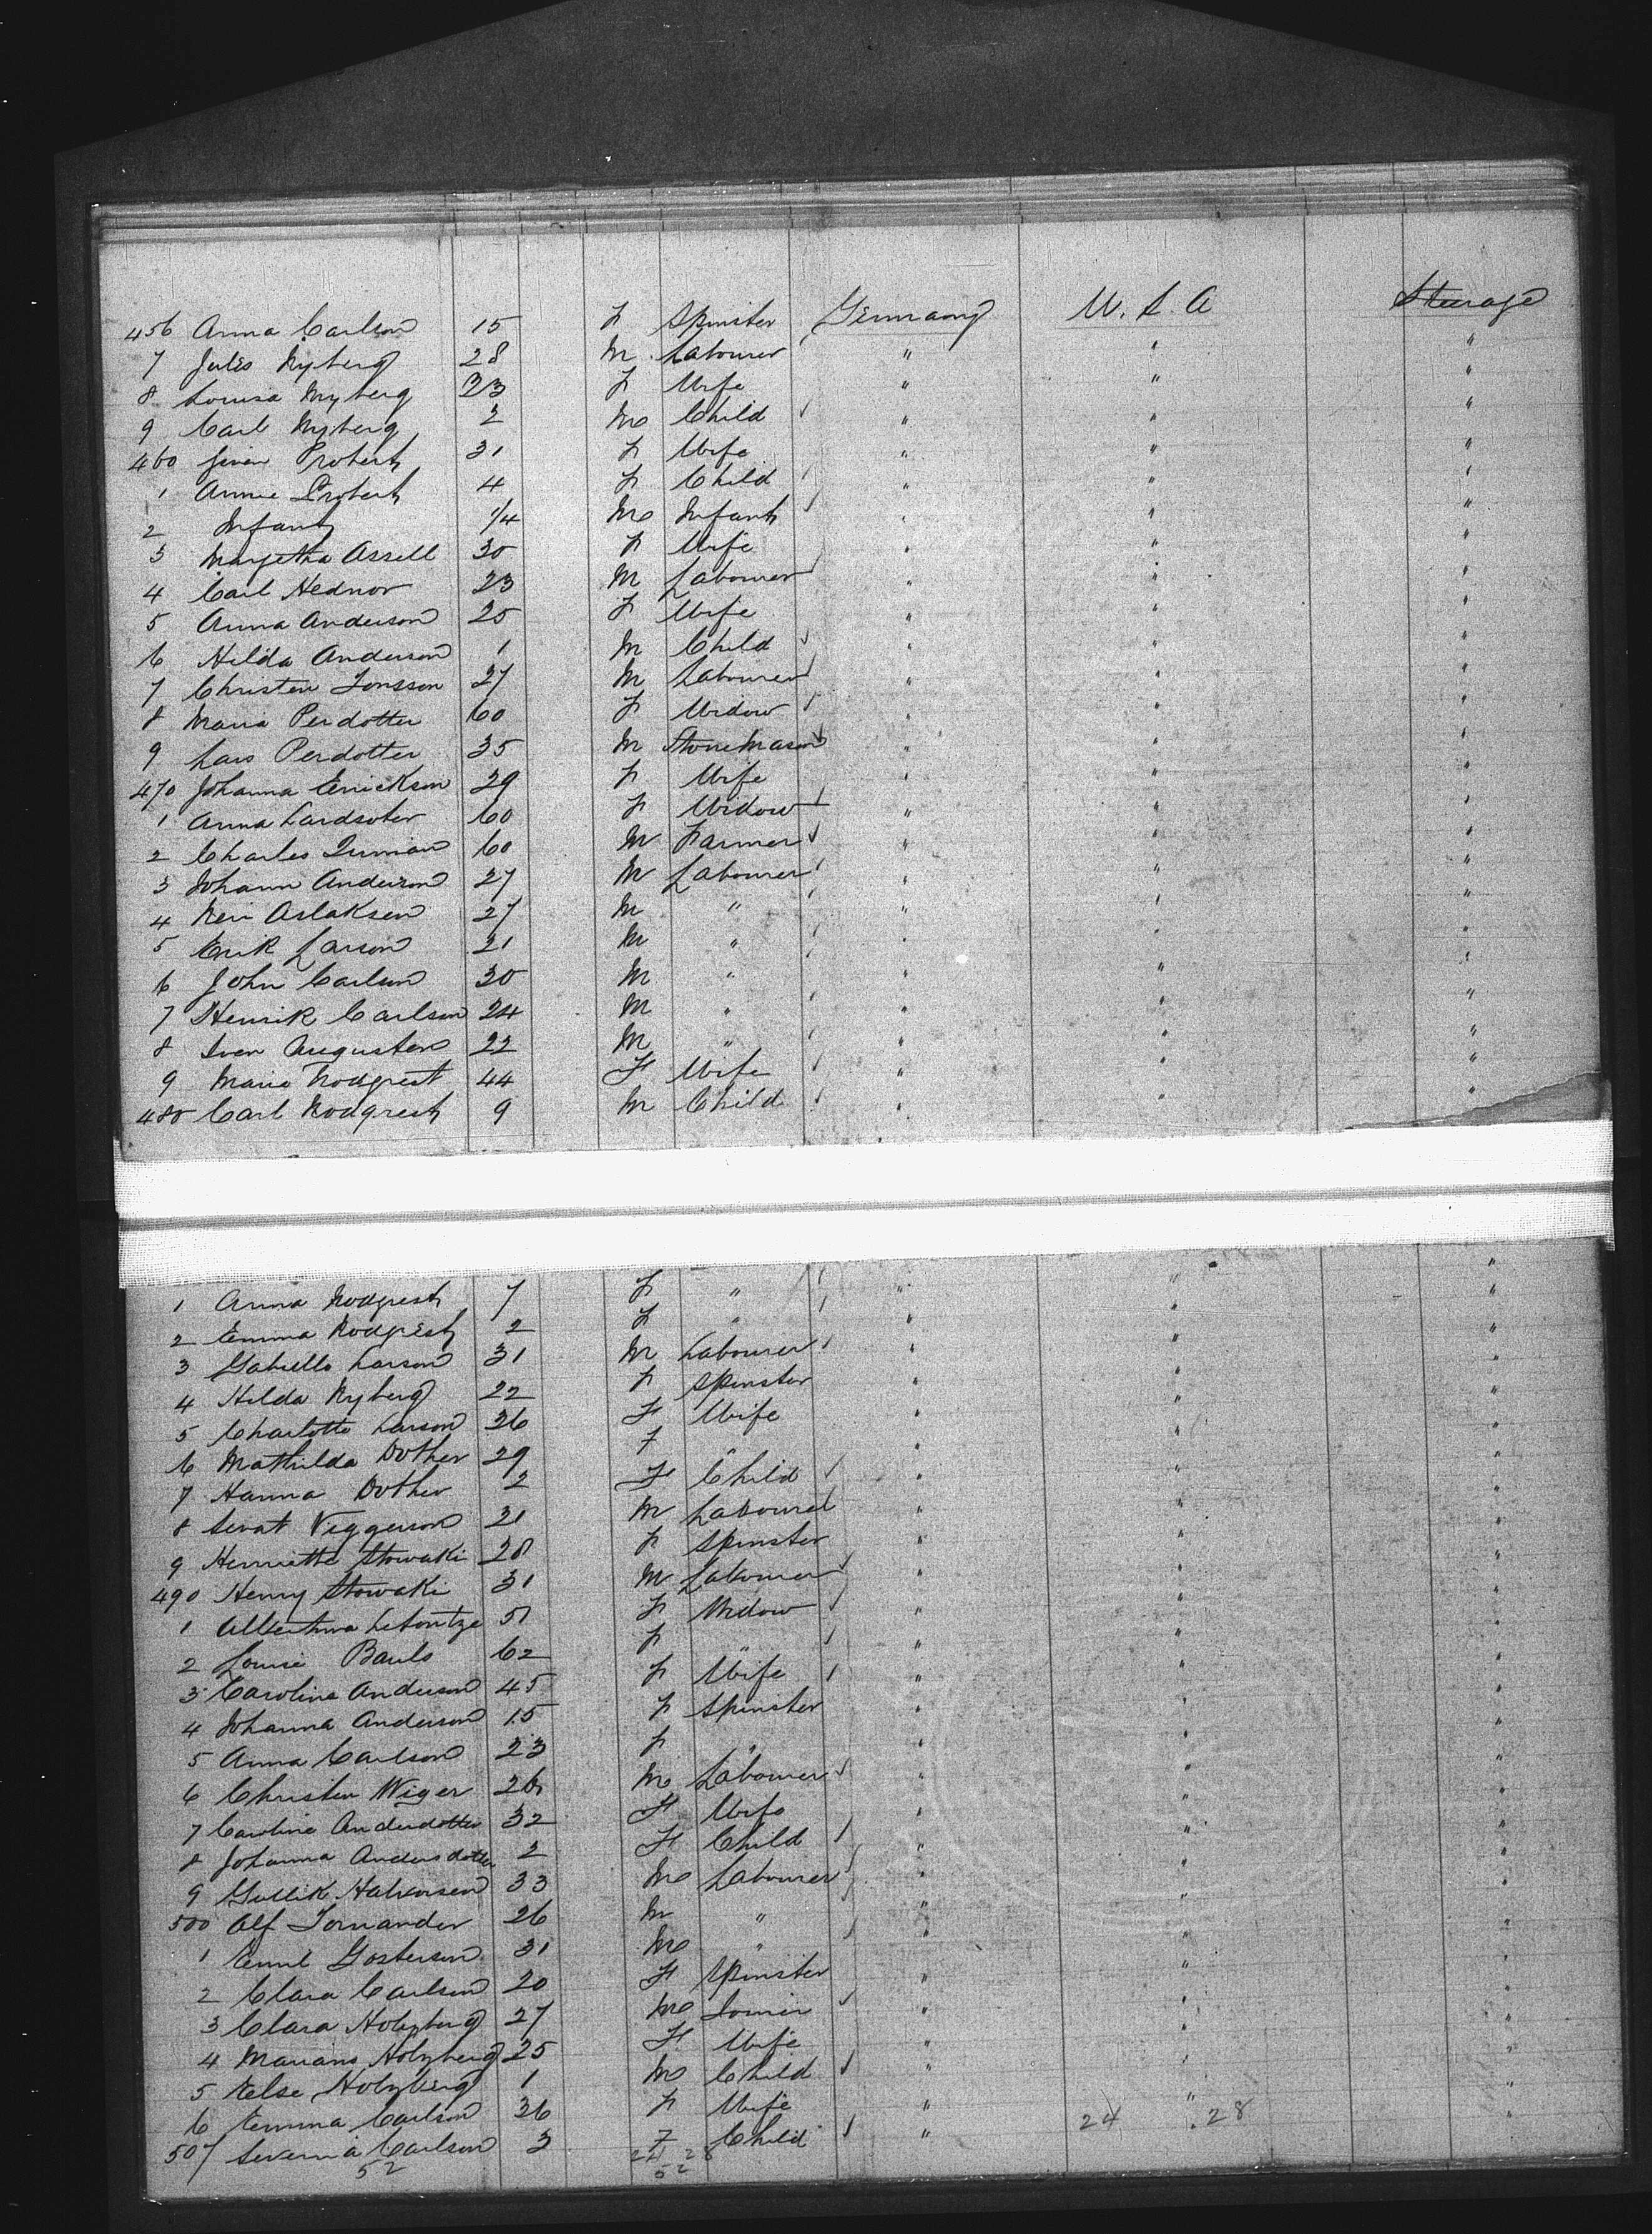 456 Anna Carlson 15 F Spinster Germany U.S.A Steerage
7 Jules Nyberg 28 M Labourer " " "
8 Louisa Nyberg 23 F Wife " " "
9 Carl Nyberg 2 M Child " " "
460 Probert 31 F Wife " " "
1 Annie Probert 4 F Child " " "
2 Infant 1/4 M Infant " " "
3 Margetha Assell 30 F Wife " " "
4 Carl Hednor 23 M Labourer " " "
5 Anna Anderson 25 F Wife " " "
6 Hilda Anderson 1 M Child " " "
7 Christen Jonsson 27 M Labourer " " "
8 Maria Perdotter 60 F Widow " " "
9 Lars Perdotter 35 M Stone Mason " " "
470 Johanna Errickson 29 F Wife " " "
1 Anna Lardsoter 60 F Widow " " "
2 Charles 60 M Farmer " " "
3 Johann Anderson 27 M Labourer " " "
4 Aslaksen 27 M " " " "
5 Erik Larson 21 M " " " "
6 John Carlson 30 M " " " "
7 Henrik Carlson 24 M " " " "
8 Sven Augusten 22 M " " " "
9 Marie Nodgrest 44 F Wife " " "
480 Carl Nodgrest 9 M Child " " "
1 Anna Nodgrest 7 F " " " "
2 Emma Nodgrest 2 F " " " "
3 Gabriello Larson 31 M Labourer " " "
4 Hilda Nyberg 22 F Spinster " " "
5 Charlotte Larson 26 F Wife " " "
6 Mathilda Dother 29 F " " " "
7 Hanna Dother 2 F Child " " "
8 Viggerson 21 M Labourer " " "
9 Henriette Stowaki 28 F Spinster " " "
490 Henry Stowaki 31 M Labourer " " "
1 Albertina 51 F Widow " " "
2 Louise Bauls 62 F " " " "
3 Caroline Anderson 45 F Wife " " "
4 Johanna Anderson 15 F Spinster " " "
5 Anna Carlson 23 F " " " "
6 Christen Wiger 26 M Labourer " " "
7 Caroline Andersdotter 32 F Wife " " "
8 Johanna Andersdotter 2 F Child " " "
9 Gullik Halvorsen 33 M Labourer " " "
500 Alf Tornander 26 M " " " "
1 Emil Gosterson 31 M " " " "
2 Clara Carlson 20 F Spinster " " "
3 Clara Holzberg 27 M Joiner " " "
4 Mariane Holzberg 25 F Wife " " "
5 Else Holzberg 1 M Child " " "
6 Emma Carlson 36 F Wife " " "
507 Severina Carlson 3 F Child " 24 28
52 24 28
52